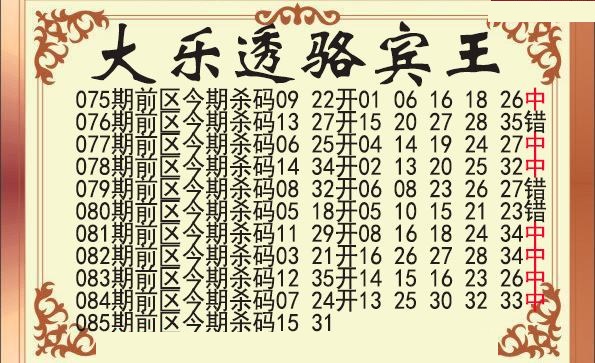 大乐透骆宾王
075期前区今期杀码09 22开01 06 16 18 26中
076期前区今期杀码13 27开15 20 27 28 35错
077期前区今期杀码06 25开04 14 19 24 27中
078期前区今期杀码14 34开02 13 20 25 32中
079期前区今期杀码08 32开06 08 23 26 27错
080期前区今期杀码05 18开05 10 15 21 23错
081期前区今期杀码11 29开08 16 18 24 34中
082期前区今期杀码03 21开16 26 27 28 34中
083期前区今期杀码12 35开14 15 16 23 26中
084期前区今期杀码07 24开13 25 30 32 33中
085期前区今期杀码15 31